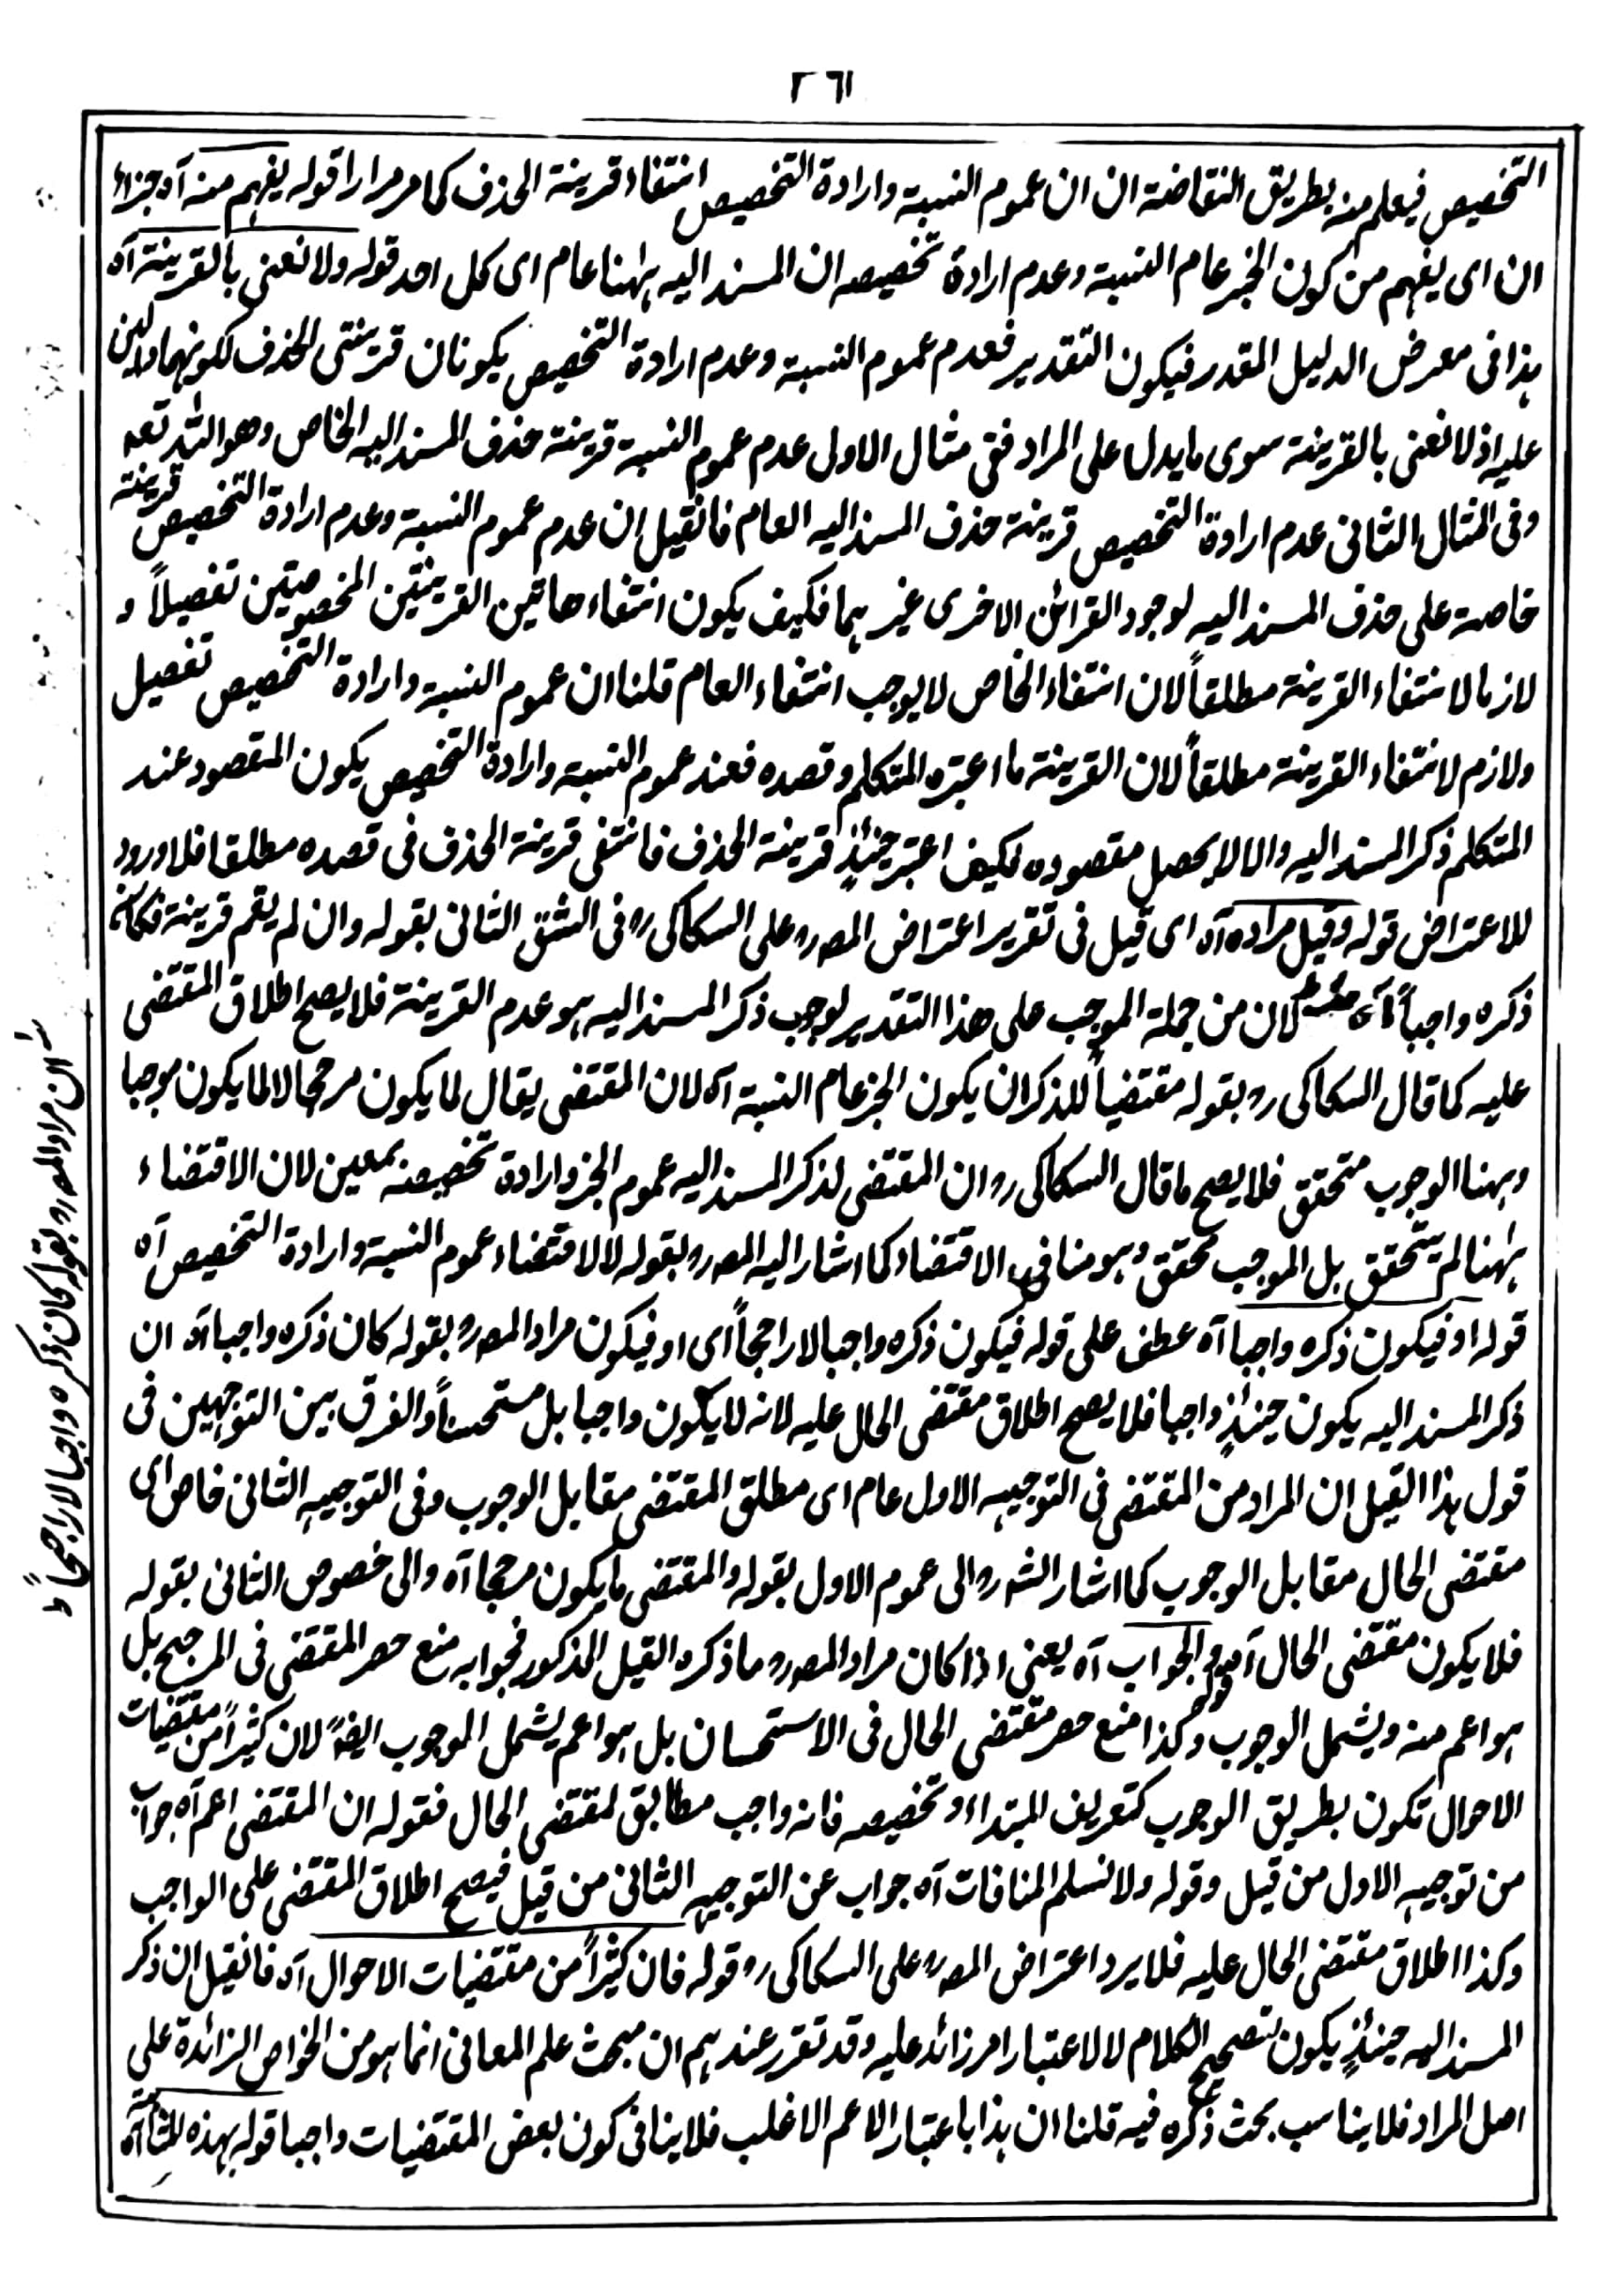 ٢٦١
التخصيص فيعلم منه بطريق النقاضة ان ان عموم النسبة وارادة التخصيص انتفاء قرينة الحذف كما مر مرارا قوله يفهم منه آه جزاء
ان اى يفهم من كون الخبر عام النسبة وعدم ارادة تخصيصه ان المسند اليه ههنا عام اى كل احد قوله ولا نعنى بالقرينة آه
هذا فى معرض الدليل المقدر فيكون التقدير فعدم عموم النسبة وعدم ارادة التخصيص يكونان قرينتى الحذف لكونهما دالين
عليه اذ لا نعنى بالقرينة سوى ما يدل على المراد ففى مثال الاول عدم عموم النسبة قرينة حذف المسند اليه الخاص وهو الله تعه
وفى المثال الثانى عدم ارادة التخصيص قرينة حذف المسند اليه العام فانقيل ان عدم عموم النسبة وعدم ارادة التخصيص قرينة
خاصة على حذف المسند اليه لوجود القرائن الاخرى غيرهما فكيف يكون انتفاء هاتين القرينتين المخصوصتين تفصيلاً و
لازما لانتفاء القرينة مطلقاً لان انتفاء الخاص لا يوجب انتفاء العام قلنا ان عموم النسبة وارادة التخصيص تفصيل
ولازم لانتفاء القرينة مطلقاً لان القرينة ما اعتبره المتكلم وقصده فعند عموم النسبة وارادة التخصيص يكون المقصود عند
المتكلم ذكر المسند اليه والا لا يحصل مقصوده فكيف اعتبر حينئذٍ قرينة الحذف فانتفى قرينة الحذف فى قصده مطلقا فلا ورود
للاعتراض قوله وقيل مراده آه اى قيل فى تقرير اعتراض المصرح على السكاكى رح فى الشق الثانى بقوله وان لم يقم قرينة فكان
ذكره واجباً آه لان من جملة الموجب على هذا التقدير لوجوب ذكر المسند اليه هو عدم القرينة فلا يصح اطلاق المقتضى
عليه كما قال السكاكى رح بقوله مقتضياً للذكر ان يكون الخبر عام النسبة آه لان المقتضى يقال لما يكون مرجحا لا لما يكون موجبا
وههنا الوجوب متحقق فلا يصح ما قال السكاكى رح ان المقتضى لذكر المسند اليه عموم الخبر وارادة تخصيصه بمعين لان الاقتضاء
ههنا لم يتحقق بل الموجب محقق وهو منافى الاقتضاء كما اشار اليه المصرح بقوله لا لاقتضاء عموم النسبة وارادة التخصيص آه
قوله او فيكون ذكره واجبا آه عطف على قوله فيكون ذكره واجبا لا راجحاً اى او فيكون مراد المصرح بقوله كان ذكره واجبا آه ان
ذكر المسند اليه يكون حينئذٍ واجبا فلا يصح اطلاق مقتضى الحال عليه لانه لا يكون واجبا بل مستحسناً والفرق بين التوجهين فى
قول هذا القيل ان المراد من المقتضى فى التوجيه الاول عام اى مطلق المقتضى مقابل الوجوب وفى التوجيه الثانى خاص اى
مقتضى الحال مقابل الوجوب كما اشار الشرح الى عموم الاول بقوله والمقتضى ما يكون مرجحا آه والى خصوص الثانى بقوله
فلا يكون مقتضى الحال آه قوله والجواب آه يعنى اذا كان مراد المصرح ما ذكره القيل المذكور فجوابه منع حصر المقتضى فى المرجح بل
هو اعم منه ويشمل الوجوب وكذا منع حصر مقتضى الحال فى الاستحسان بل هو اعم يشمل الموجوب ايضاً لان كثيراً من مقتضيات
الاحوال تكون بطريق الوجوب كتعريف المبتداء وتخصيصه فانه واجب مطابق لمقتضى الحال فقوله ان المقتضى اعم آه جواب
من توجيه الاول من قيل وقوله ولا نسلم المنافات آه جواب عن التوجيه الثانى من قيل فيصح اطلاق المقتضى على الواجب
وكذا اطلاق مقتضى الحال عليه فلا يرد اعتراض المصرح على السكاكى رح قوله فان كثيراً من مقتضيات الاحوال آه فانقيل ان ذكر
المسند اليه حينئذٍ يكون لتصحيح الكلام لا لاعتبار امر زائد عليه وقد تقرر عندهم ان مبحث علم المعانى انما هو من الخواص الزائدة على
اصل المراد فلا يناسب بحث ذكره فيه قلنا ان هذا باعتبار الاعم الاغلب فلا ينافى كون بعض المقتضيات واجبا قوله بهذه المثابة آه
ان مراد المصرح بقوله كان ذكره واجبا لا راجحاً